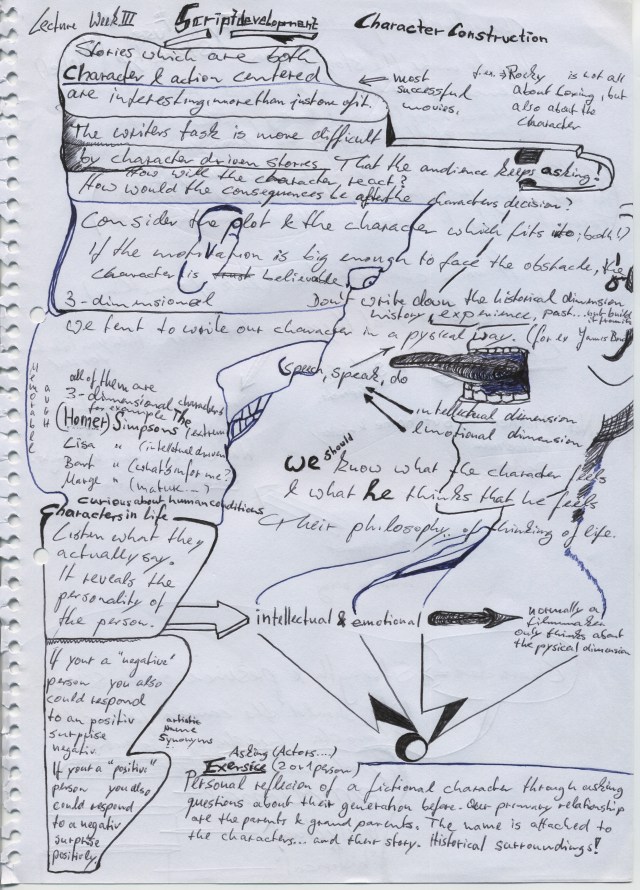 Lecture Week III Scriptdevelopment Character Construction
Stories which are both
Character & action centered
are interesting; more than just one of it.
most
successful
movies.
f.ex. → Rocky is not all
about boxing, but
also about the
character
The writers task is more difficult
by character driven stories. That the audience keeps asking!
How will the character react?
How would the consequences be after the characters decision?
Consider the plot & the character which fits to; both!
If the motivation is big enough to face the obstacle, the
character is trust believable
3-dimensional
Don't write down the historical dimension
history, experience, past...
We tent to write our character in a pysical way. (for ex
speech, speak, do
intellectual dimension
emotional dimension
all of them are
3-dimensional characters
for example The
(Homer) Simpsons
Lisa " (intellectual driven
Bart " (what's in for me?
Marge "
curious about human conditions
we should know what the character feels
& what he thinks that he feels
Their philosophy of thinking of life.
Characters in life
Listen what they
actually say.
It reveals the
personality of
the person.
intellectual & emotional
normally a
filmmaker
only thinks about
the physical dimension
If your a "negative"
person you also
could respond
to an positiv
surprise
negativ.
artistic
name
synonyms
If your a "positive"
person you also
could respond
to a negativ
surprise
positively
Asking (Actors....)
Exersice (2 on 1 person)
Personal reflecion of a fictional character through asking
questions about their generation before. Our primary relationship
are the parents & grand parents. The name is attached to
the characters... and their story. Historical surroundings!